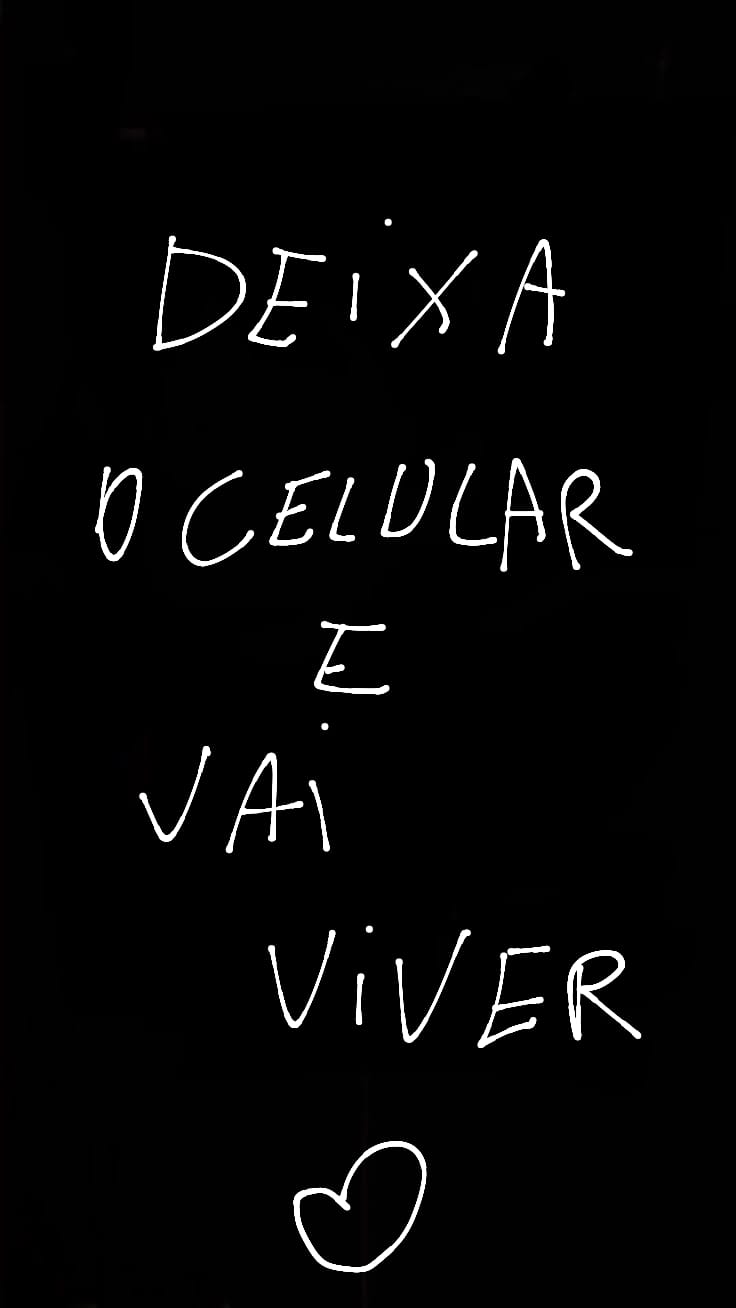 DEIXA
O CELULAR
E
VAI
VIVER